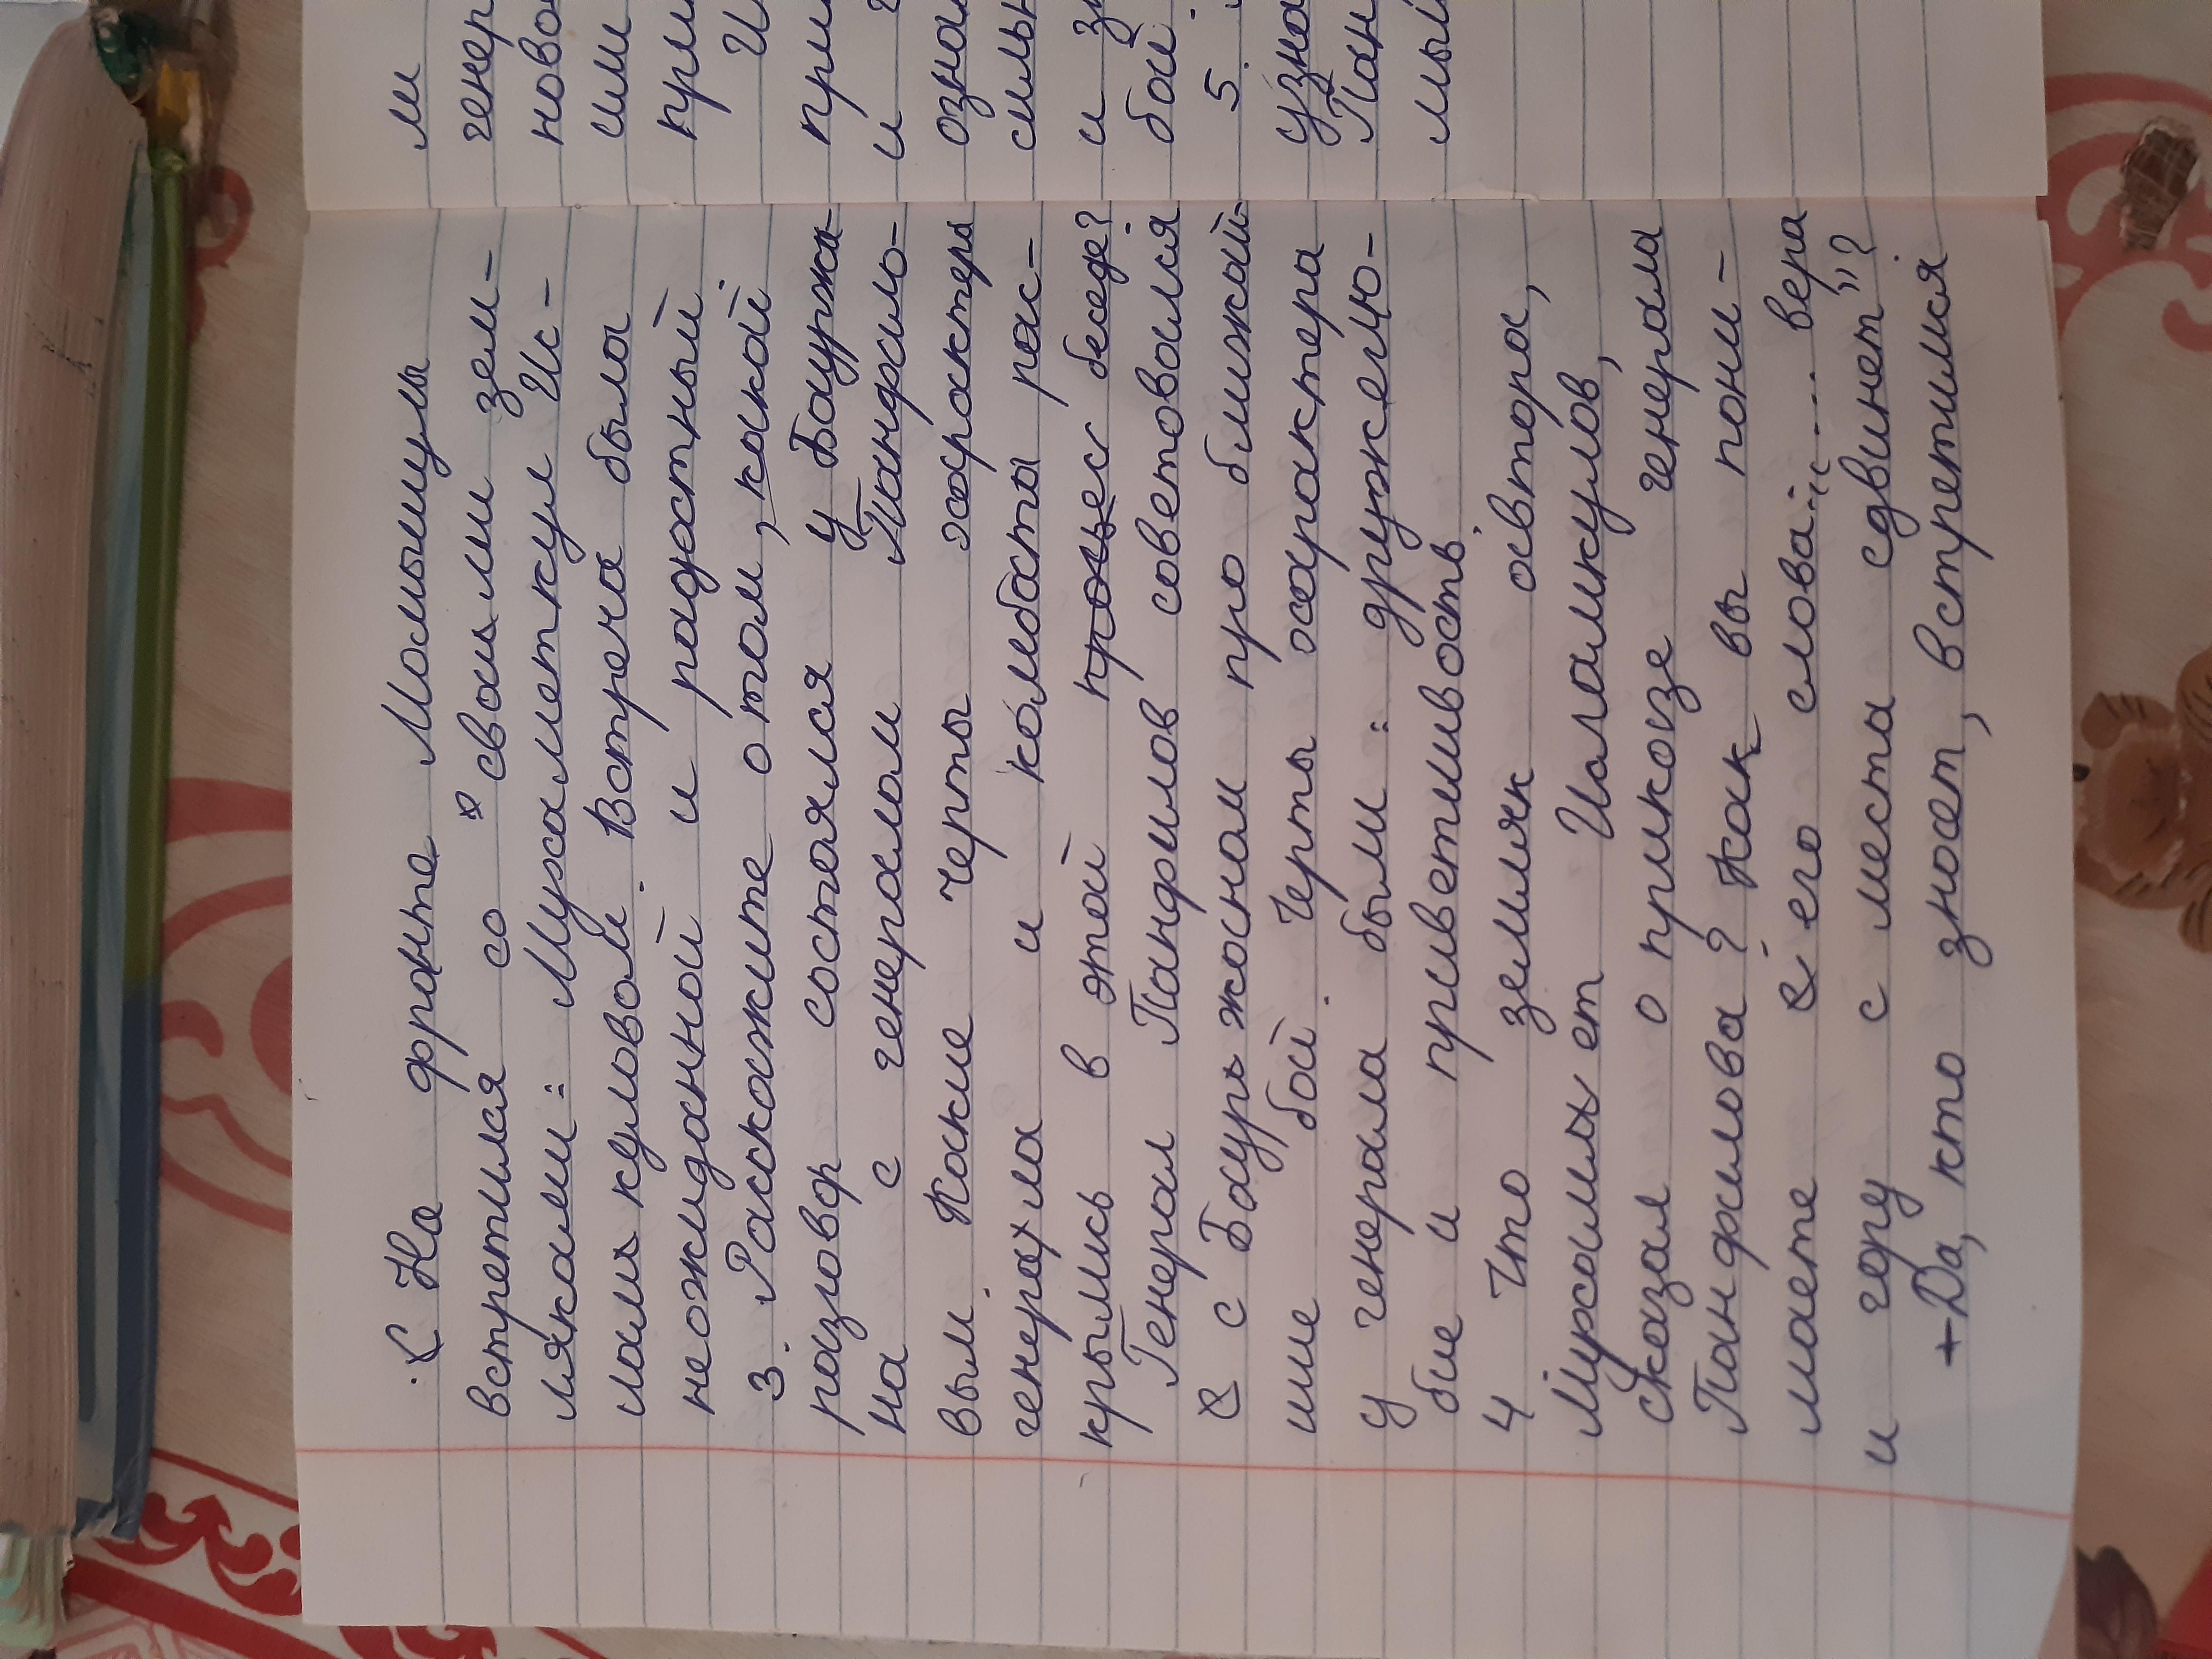 На фронте Момышулы
встретился со своими зем-
ляками: Мухаметкул Ис-
ламкуловом. Встреча была
неожиданной и радостный.
3. Расскажите о том, какой
разговор состоялся у Бауржа-
на с генералом Панфило-
вым. Какие черты характера
генерала и комбата рас-
крылись в этой беседе?
Генерал Панфилов советовался
с Бауржаном про ближай-
шие бой. Черты характера
у генерала были: дружелю-
бие и приветливость.
4 Что земляк автора,
Мурсалимхет Исламкулов,
сказал о приказе генерала
Панфилова? Как вы пони-
маете его слова: "... вера
и гору с места сдвинет"?
+ Да, кто знает, встретимся
ли
генер
ново
сили
при
И
при
и
озна
сильн
и
бой
5.
узна
Пан
мый